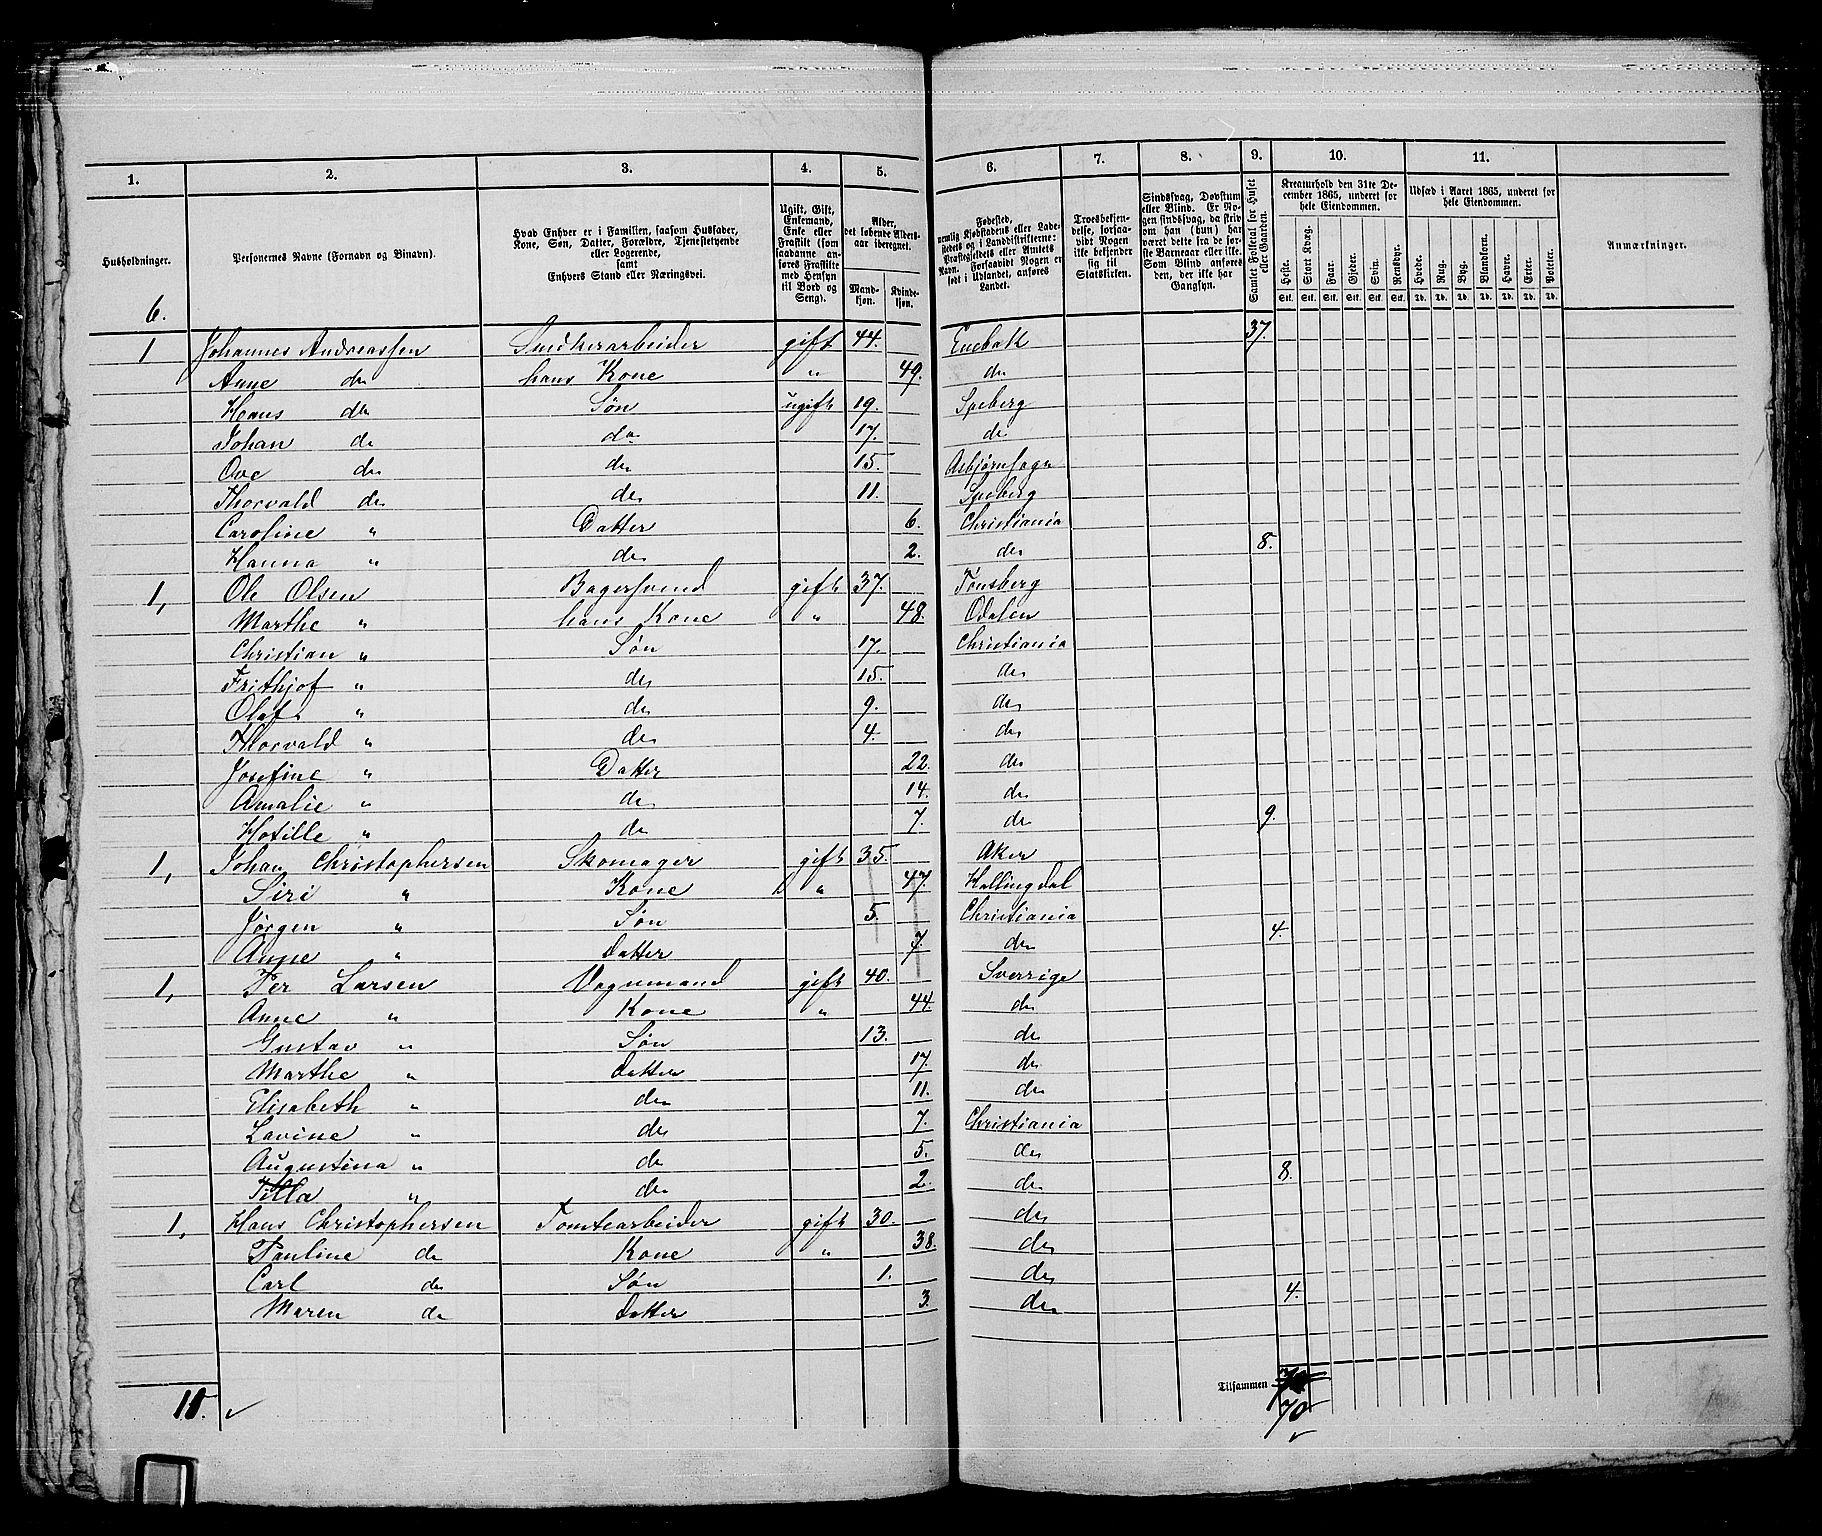 1. 2. 3. 4. 5. 6. 7. 8. 9. 10. 11.
Husholdninger.
Personernes Navne (Fornavn og Binavn).
Hvad Enhver er i Familien, saasom Husfader, Kone, Søn, Datter, Forældre, Tjenestetyende eller Logerende, samt Enhvers Stand eller Næringsvei.
Ugift, Gift, Enkemand, Enke eller Fraskilt (som saadanne anføres Fraskilte med Hensyn til Bord og Seng).
Alder, det løbende Aldersaar iberegnet.
Mandkjøn. Kvindekjøn.
Fødested, nemlig Kjøbstadens eller Ladestedets og i Landdistrikterne: Præstegjeldets eller Amtets Navn. Forsaavidt Nogen er født i Udlandet, anføres Landet.
Troesbekjendelse, forsaavidt Nogen ikke bekjender sig til Statskirken.
Sindssvag, Døvstum eller Blind. Er Nogen sindssvag, da skrives om han (hun) har været dette fra de første Barneaar eller ikke. Som Blind anføres den, der ikke har Gangsyn.
Samlet Folketal for Huset eller Gaarden.
Kreaturhold den 31te December 1865, underet for hele Eiendommen.
Heste. Stort Kvæg. Faar. Gjeder. Svin. Rensdyr.
Stk. Stk. Stk. Stk. Stk. Stk.
Udsæd i Aaret 1865, underet for hele Eiendommen.
Hvede. Rug. Byg. Blandkorn. Havre. Erter. Poteter.
Td. Td. Td. Td. Td. Td. Td.
Anmærkninger.
6. 37.
1 Johannes Andreassen Snedkerarbeider gift 44. Enebak
Anne do hans Kone " 49. do
Hans do Søn ugift 19. Speberg
Johan do do 17. do
Ove do do 15. Asbjørnsogn
Thorvald do do 11. Speberg
Caroline " Datter 6. Christiania
Hanna " do 2. do 8.
1, Ole Olsen Bagersvend gift 37. Tønsberg
Marthe " hans Kone " 48. Odalen
Christian " Søn 17. Christiania
Frithjof " do 15. do
Olaf " do 9. do
Thorvald " do 4. do
Josefine " Datter 22. do
Amalie " do 14. do
Hotille " do 7. do 9.
1, Johan Christophersen Skomager gift 35. Aker
Siri " Kone " 47. Hallingdal
Jørgen " Søn 5. Christiania
Anne " Datter 7. do 4.
1, Per Larsen Vognmand gift 40. Sverrige
Anne " Kone " 44. do
Gustav " Søn 13. do
Marthe " Datter 17. do
Elisabeth " do 11. do
Lavine " do 7. Christiania
Augustina " do 5. do
Tilla " do 2. do 8.
1, Hans Christophersen Tomtearbeider gift 30. do
Pauline do Kone " 38. do
Carl do Søn 1. do
Maren do Datter 3. do 4.
Tilsammen
11. 70